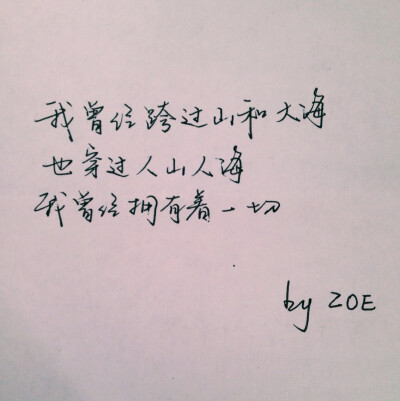 我曾经跨过山和大海
也穿过人山人海
我曾经拥有着一切
by ZOE